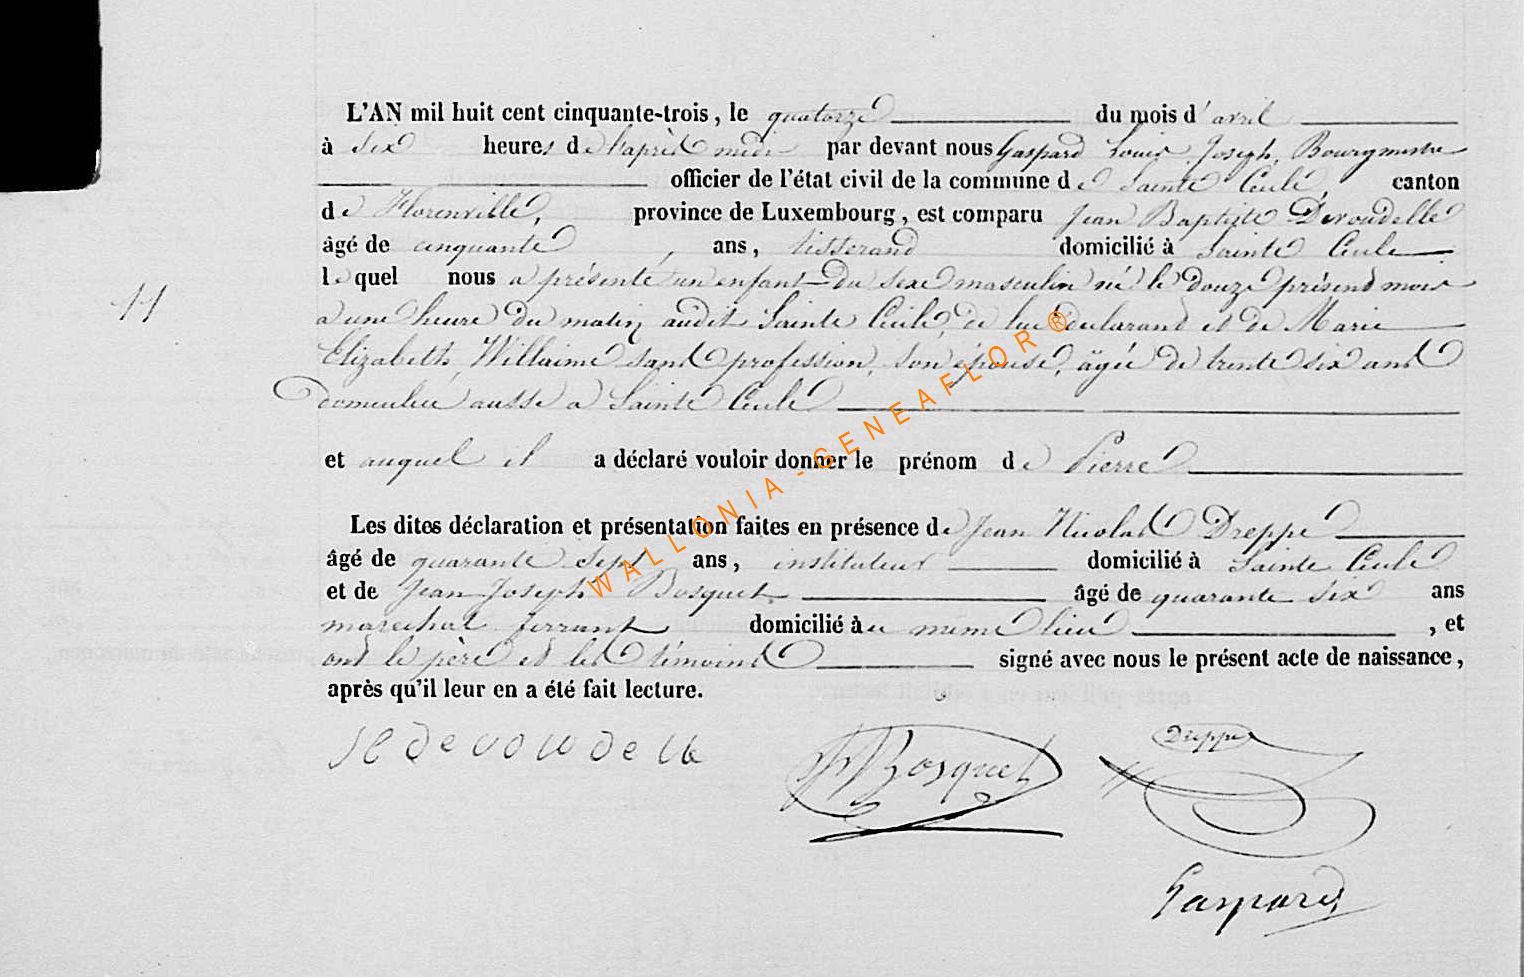 L'AN mil huit cent cinquante-trois, le quatorze du mois d'avril
à six heures de l'après midi par devant nous Gaspard Louis Joseph, Bourgmestre
officier de l'état civil de la commune de Sainte Cecile, canton
de Florenville, province de Luxembourg, est comparu Jean Baptiste Devoudelle
âgé de cinquante, ans, tisserand domicilié à Sainte Cecile
lequel nous a présenté un enfant du sexe masculin né le douze présend mois
a une heure du matin audit Sainte Cecile, de lui déclarand et de Marie
Elizabeth Willaime sans profession, son épouse, âgée de trente six ans
domiciliée aussi a Sainte Cecile
et auquel il a déclaré vouloir donner le prénom de Pierre
11
Les dites déclaration et présentation faites en présence de Jean Nicolas Dreppe
âgé de quarante sept ans, instituteur domicilié à Sainte Cecile
et de Jean Joseph Bosquet âgé de quarante six ans
marechal ferrant domicilié à au même lieu, et
ont le père et les témoins signé avec nous le présent acte de naissance,
après qu'il leur en a été fait lecture.
Bosquet Dreppe
Gaspard
WALLONIA - GENEAFLOR ®